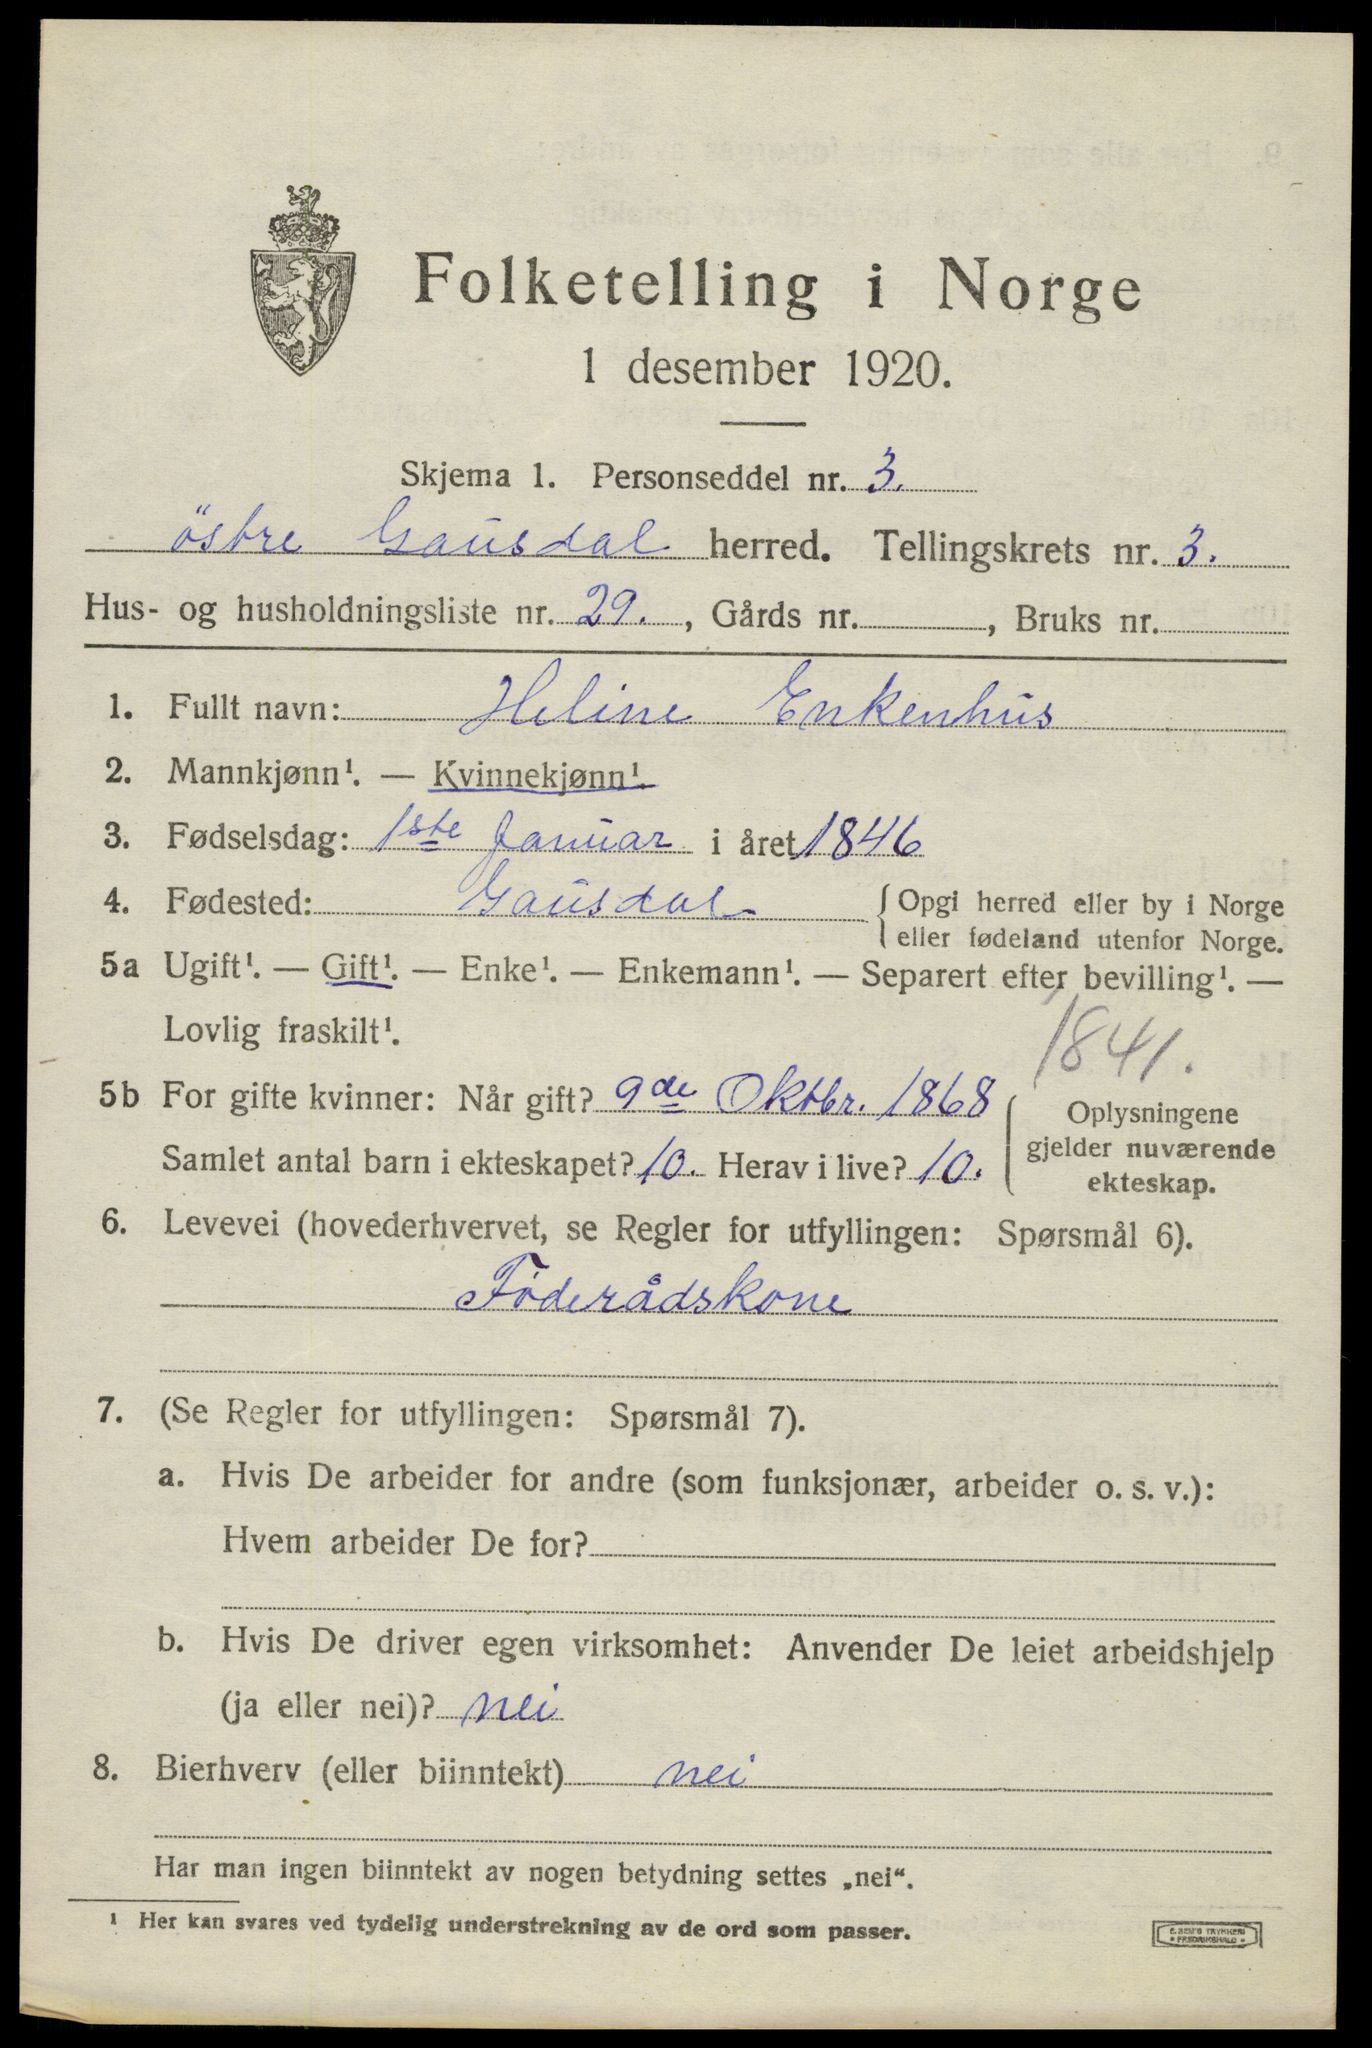 Folketelling i Norge
1 desember 1920.
Skjema 1. Personseddel nr. 3.
östre Gausdal herred. Tellingskrets nr. 3.
Hus- og husholdningsliste nr. 29., Gårds nr. , Bruks nr.
1. Fullt navn: Heline Enkenhus
2. Mannkjønn¹. — Kvinnekjønn¹.
3. Fødselsdag: 1ste Januar i året 1846
4. Fødested: Gausdal { Opgi herred eller by i Norge
eller fødeland utenfor Norge.
5a Ugift¹. — Gift¹. — Enke¹. — Enkemann¹. — Separert efter bevilling¹. —
Lovlig fraskilt¹.
1841.
5b For gifte kvinner: Når gift? 9de Oktbr. 1868
Samlet antal barn i ekteskapet? 10. Herav i live? 10.
{ Oplysningene
gjelder nuværende
ekteskap.
6. Levevei (hovederhvervet, se Regler for utfyllingen: Spørsmål 6).
Föderådskone
7. (Se Regler for utfyllingen: Spørsmål 7).
a. Hvis De arbeider for andre (som funksjonær, arbeider o. s. v.):
Hvem arbeider De for?
b. Hvis De driver egen virksomhet: Anvender De leiet arbeidshjelp
(ja eller nei)? nei
8. Bierhverv (eller biinntekt) nei
Har man ingen biinntekt av nogen betydning settes „nei“.
¹ Her kan svares ved tydelig understrekning av de ord som passer.
E. SEM'S TRYKKERI
• FREDRIKSHALD •